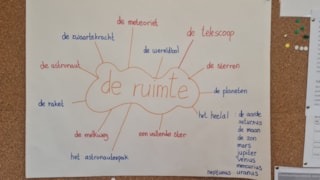 de meteoriet
de zwaartekracht
de wereldbol
de telescoop
de astronaut
de sterren
de ruimte
de planeten
de raket
het heelal
de melkweg
een vallende ster
het astronautenpak
de aarde
saturnus
de maan
de zon
mars
jupiter
venus
mercurius
neptunus
uranus